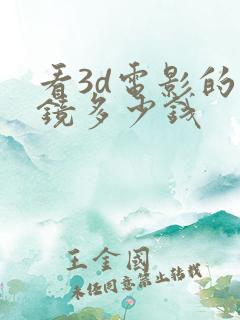 看3d电影的
镜多少钱
王金國
未经同意禁止转载